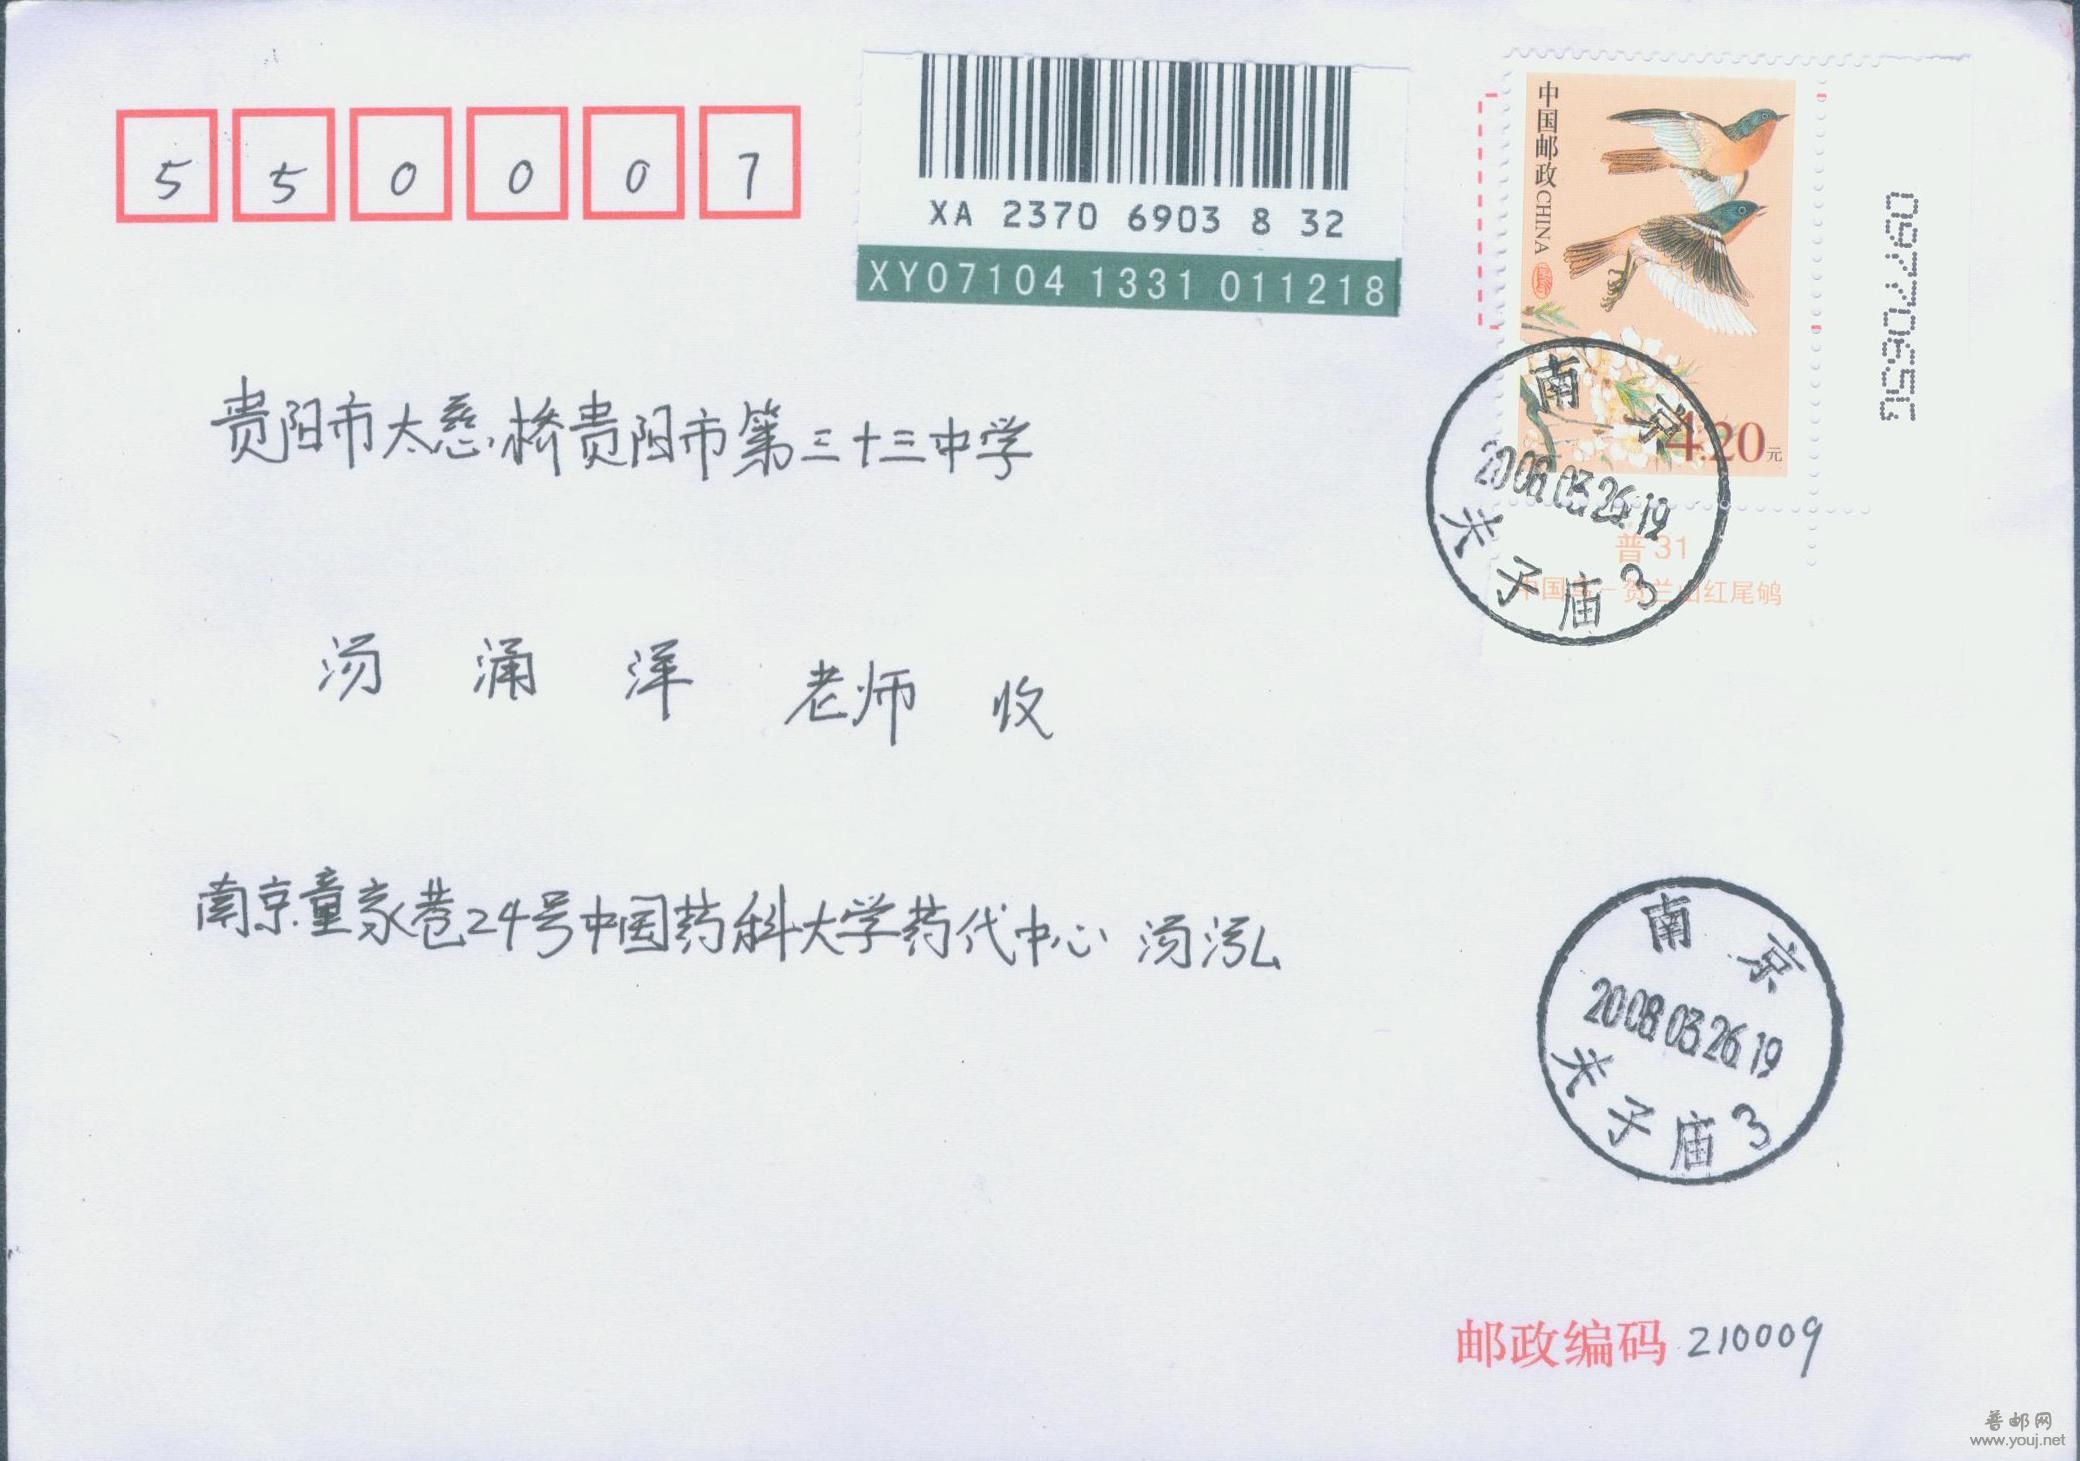 550007
XA 2370 6903 8 32
XY07104 1331 011218
中国邮政CHINA
4.20元
09770659
南京
2008.03.26.19
夫子庙3
普31
中国鸟—贺兰山红尾鸲
贵阳市太慈桥贵阳市第三十三中学
汤涌洋老师 收
南京童家巷24号中国药科大学药代中心 汤泓
南京
2008.03.26.19
夫子庙3
邮政编码 210009
普邮网
www.youj.net